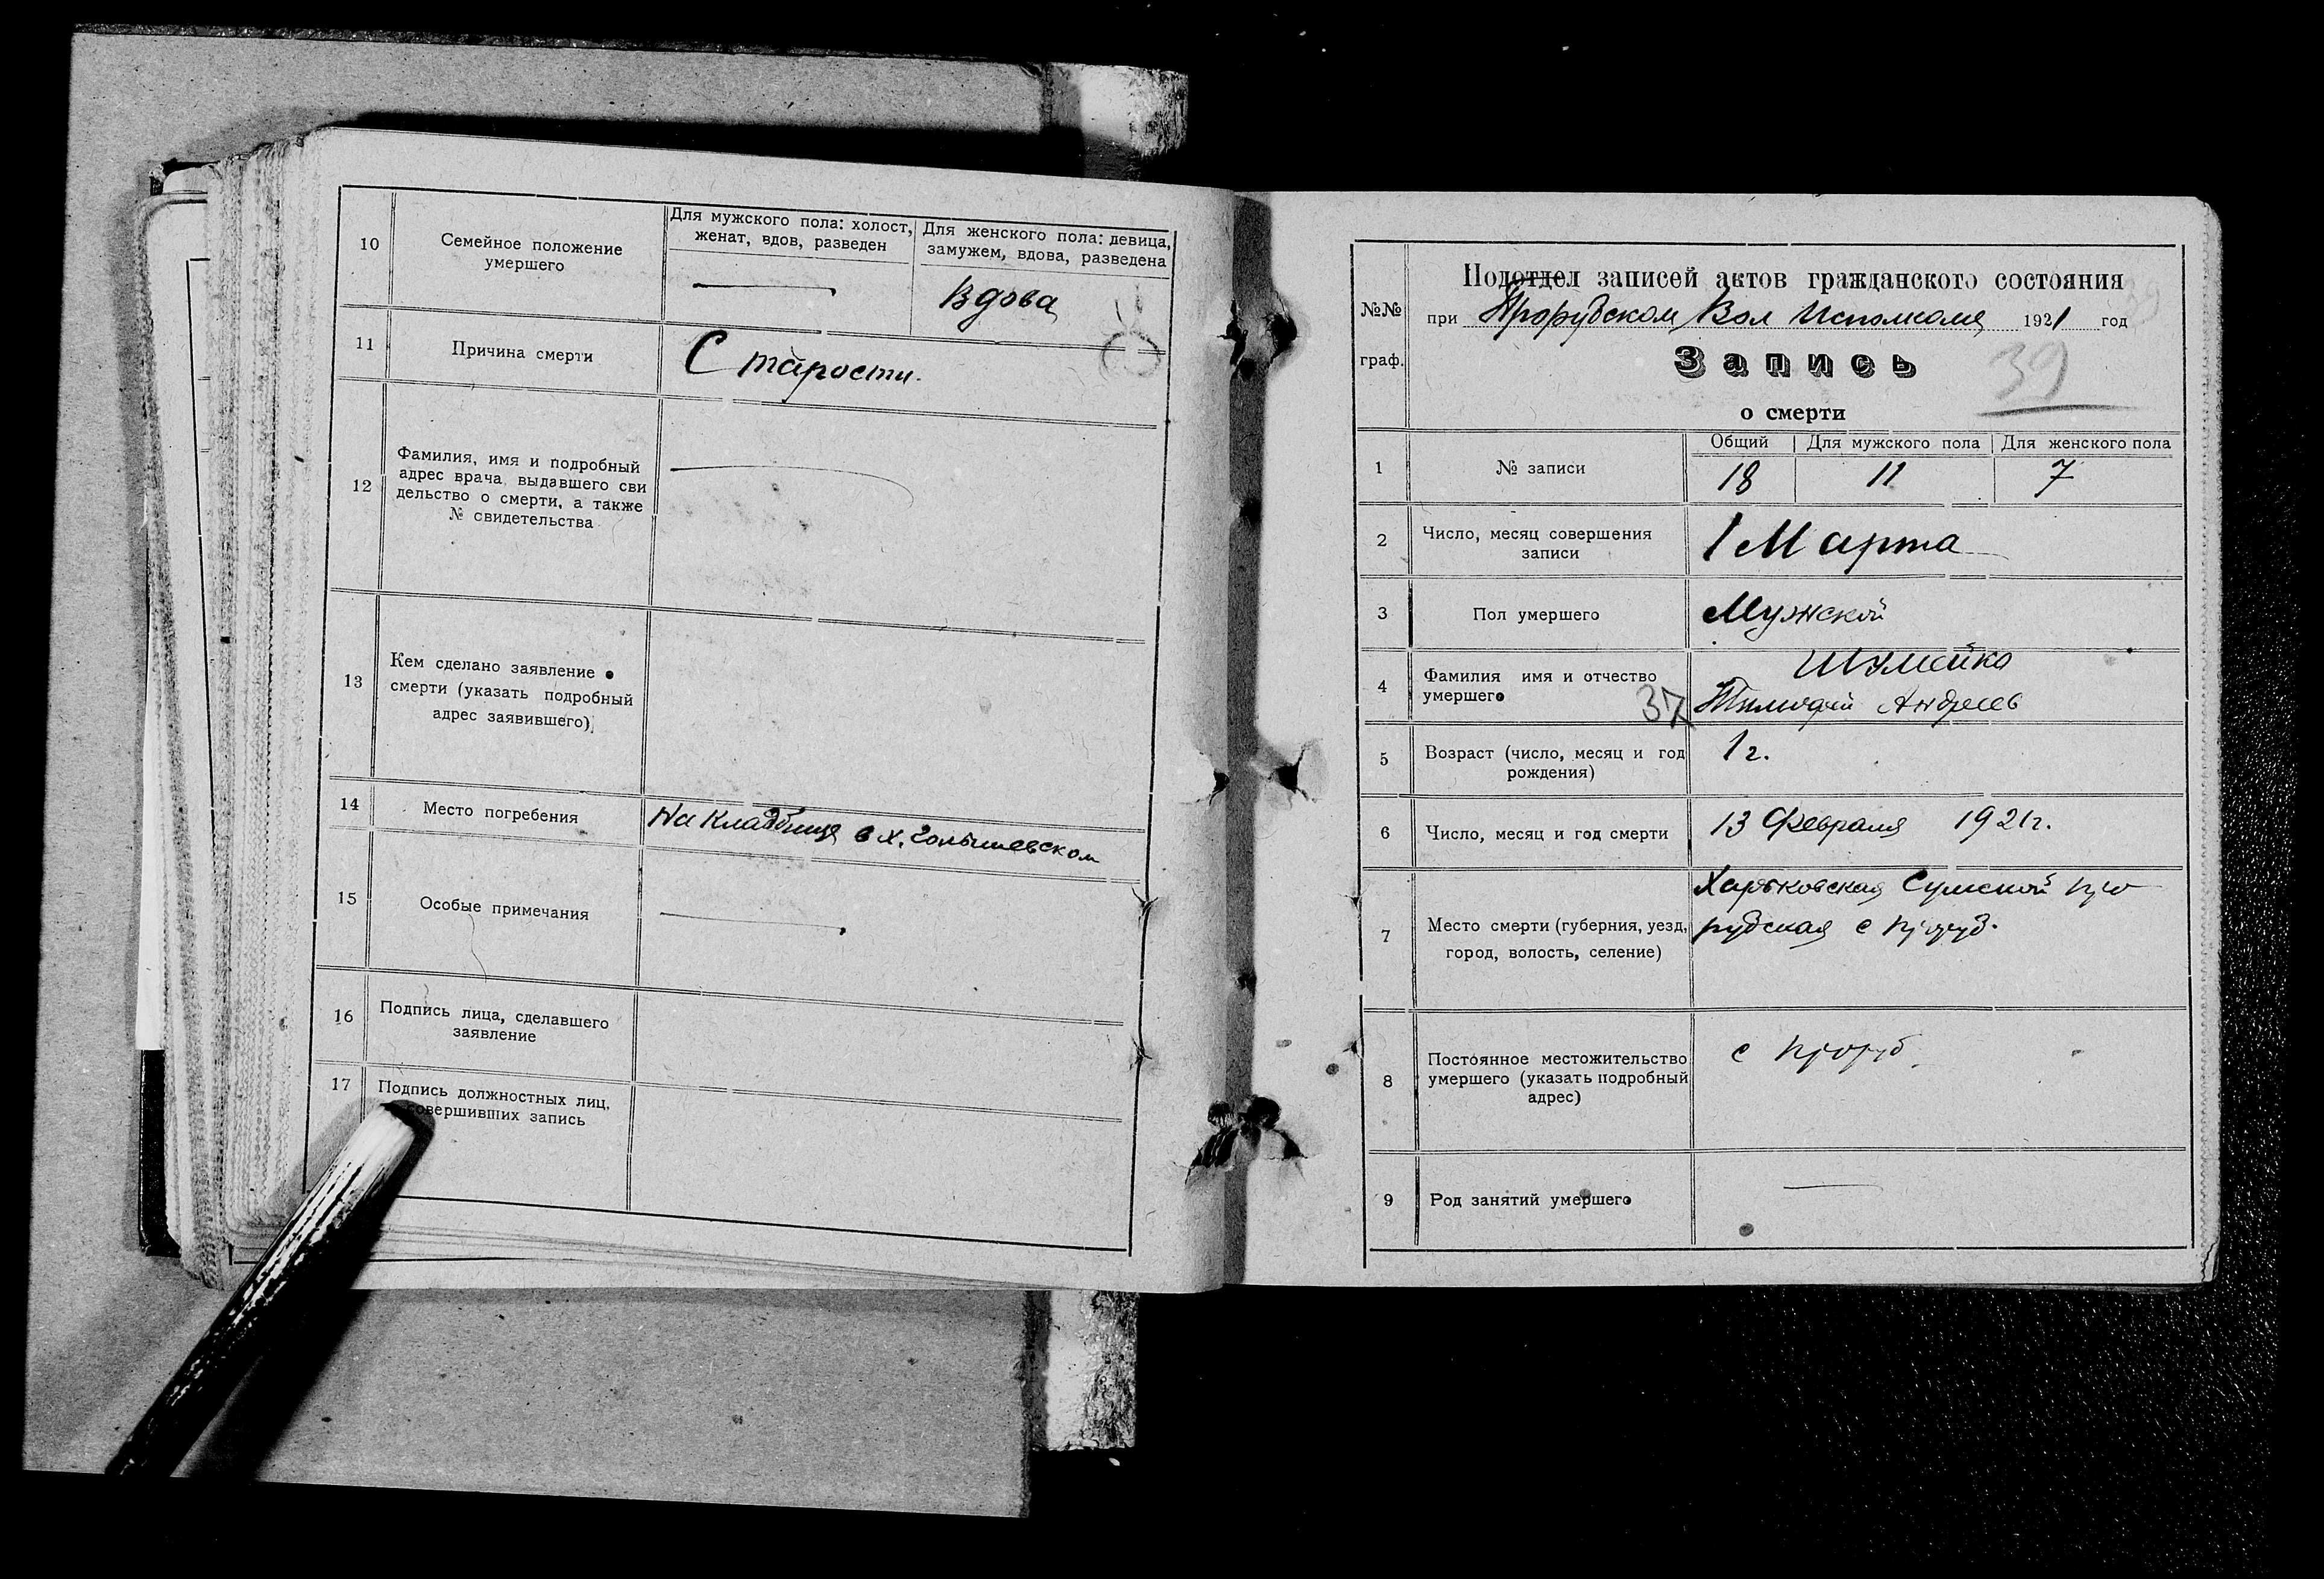 10
Семейное положение
умершего
Для мужского пола: холост,
женат, вдов, разведен
Для женского пола: девица,
замужем, вдова, разведена
Вдова
11
Причина смерти
Старости.
12
Фамилия, имя и подробный
адрес врача, выдавшего сви
дельство о смерти, а также
№ свидетельства
13
Кем сделано заявление о
смерти (указать подробный
адрес заявившего)
14
Место погребения
На кладбище в х.
15
Особые примечания
16
Подпись лица, сделавшего
заявление
17
Подпись должностных лиц,
совершивших запись
№№
граф.
Подотдел записей актов гражданского состояния
при Прорубском Вол Исполкоме 1921 год
Запись
39
о смерти
1
№ записи
Общий
Для мужского пола
Для женского пола
18
11
7
2
Число, месяц совершения
записи
1 Марта
3
Пол умершего
Мужской
4
Фамилия имя и отчество
умершего
37
Шумейко
Тимофей Андреев
5
Возраст (число, месяц и год
рождения)
1 г.
6
Число, месяц и год смерти
13 Февраля 1921 г.
7
Место смерти (губерния, уезд,
город, волость, селение)
Харьковская Сумской Про
рубская с Проруб.
8
Постоянное местожительство
умершего (указать подробный
адрес)
с Проруб.
9
Род занятий умершего